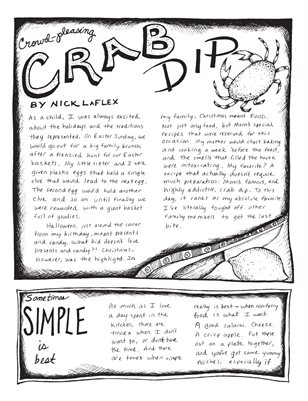 Crowd-pleasing
CRAB
DIP
BY NICK LAFLEX
As a child, I was always excited
about the holidays and the traditions
they represented. On Easter Sunday, we
would go out for a big family brunch
after a frenzied hunt for our Easter
baskets. My little sister and I were
given plastic eggs that held a single
clue that would lead to the next egg.
The second egg would hold another
clue and so on until finally we
were rewarded with a giant basket
full of goodies.
Halloween, just around the corner
from my birthday, meant presents
and candy. What kid doesn't love
presents and candy?! Christmas,
however, was the highlight. In
my family, Christmas meant Food.
Not just any food, but Mom's special
recipes that were reserved for this
occasion. My mother would start baking
and cooking a week before the feast,
and the smells that filled the house
were intoxicating. My favorite? A
recipe that actually doesn't require
much preparation: Mom's famous, and
highly addictive, crab dip. To this
day, it ranks as my absolute favorite.
I've literally fought off other
family members to get the last
bite.
Sometimes
SIMPLE
is
best
As much as I love
a day spent in the
kitchen, there are
times when I don't
want to, or don't have
the time. And there
are times when simple
really is best - when no fancy
food is what I want.
A good salami. Cheese.
A crisp apple. Put these
out on a plate together,
and you've got some yummy
noshes, especially if